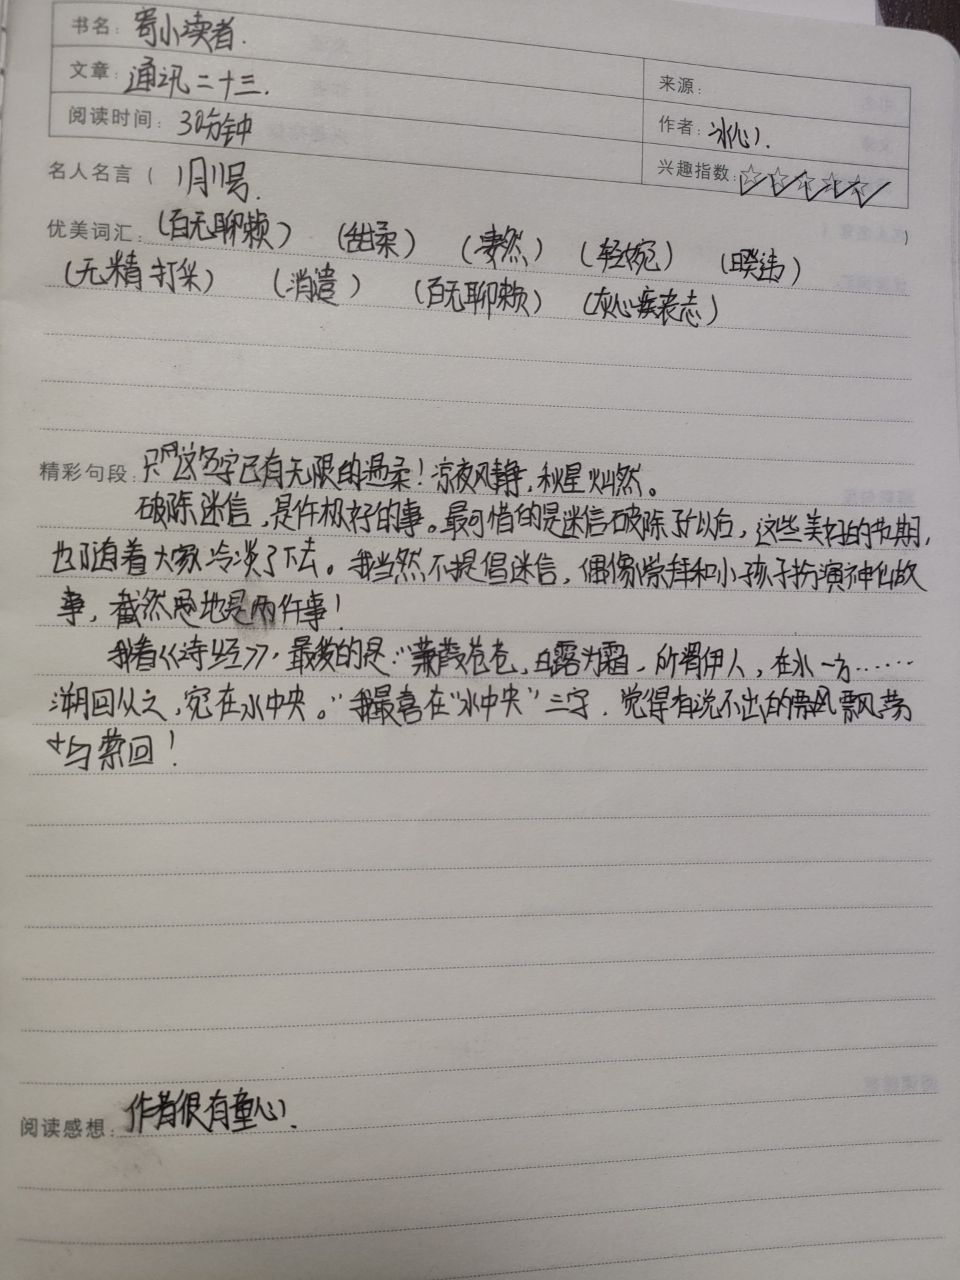 书名：寄小读者.
文章：通讯二十三.
来源：
阅读时间：30分钟
作者：冰心.
兴趣指数：☆☆☆☆☆
名人名言（ 1月11号. ）
优美词汇：(百无聊赖) (甜柔) (凄然) (轻婉) (暌违)
(无精打采) (消遣) (百无聊赖) (灰心丧志)
精彩句段：只这名字已有无限的温柔！凉夜风静，秋星灿然。
破除迷信，是件极好的事。最可惜的是迷信破除了以后，这些美好的节期，
也随着大家冷淡了下去。我当然不提倡迷信，偶像崇拜和小孩子扮演神仙故
事，截然地是两件事！
我看《诗经》，最爱的是：“蒹葭苍苍，白露为霜，所谓伊人，在水一方……
溯回从之，宛在水中央。”我最喜在“水中央”三字．觉得有说不出的飘荡
与萦回！
阅读感想：作者很有童心.